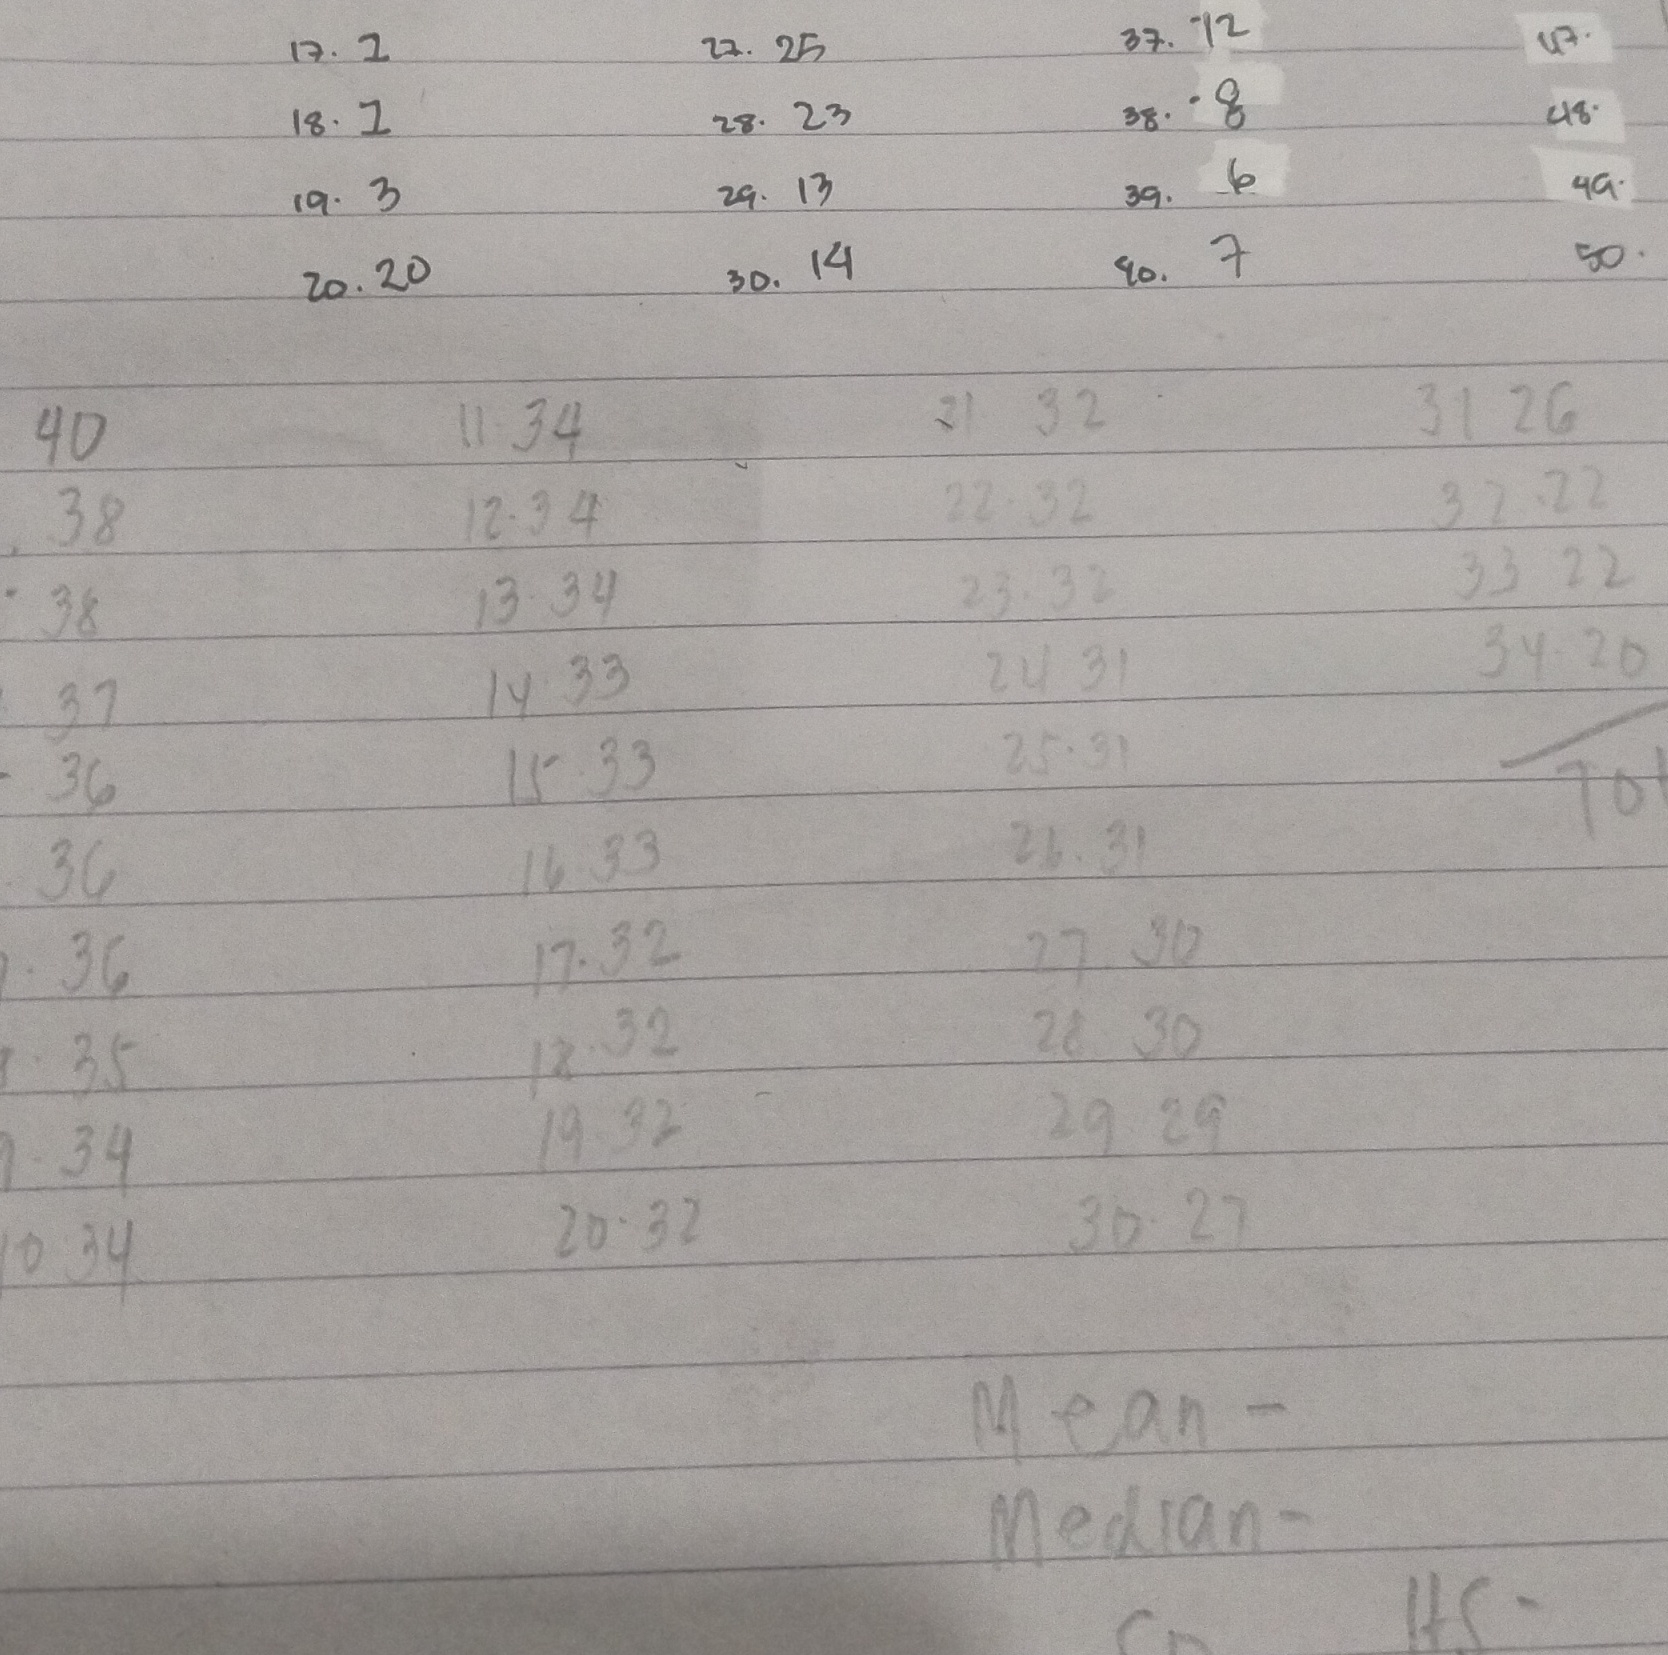 17. 1 27. 25 37. 12 47.
18. 1 28. 23 38. 8 48.
19. 3 29. 13 39. 6 49.
20. 20 30. 14 40. 7 50.
40 11. 34 21 32 31 26
38 12. 34 22. 32 32. 22
38 13. 34 23. 32 33 22
37 14 33 24 31 34. 20
36 15. 33 25. 31 Tot
36 16. 33 26. 31
36 17. 32 27 30
35 18. 32 28 30
34 19. 32 29. 29
10 34 20. 32 30. 27
Mean -
Median -
HS -